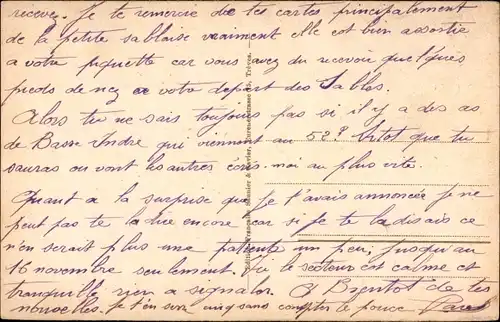 recevez. Je te remercie de tes cartes principalement
de la petite sablaise vraiment elle est bien assortie
a votre piquette car vous avez du recevoir quelques
pieds de nez a votre depart des Sables.
Alors tu ne sais toujours pas si il y a des as
de Basse Indre qui viennent au 52e bitot que tu
sauras ou vont les autres écris-moi au plus vite.
Quant a la surprise que je t'avais annoncée je ne
peut pas te la dire encore car si je te la disais ce
n'en serait plus une patiente un peu, jusqu'au
16 novembre seulement. Ici le secteur est calme et
tranquille rien a signaler. A Bientôt de tes
nouvelles. Je t'en serre cinq sans compter le pouce